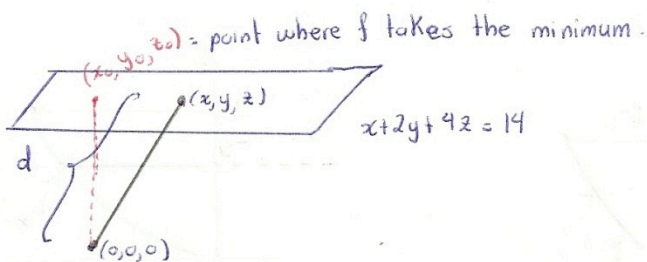 (x₀, y₀, z₀) = point where f takes the minimum.
(x, y, z)
x+2y+4z = 14
d
(0,0,0)